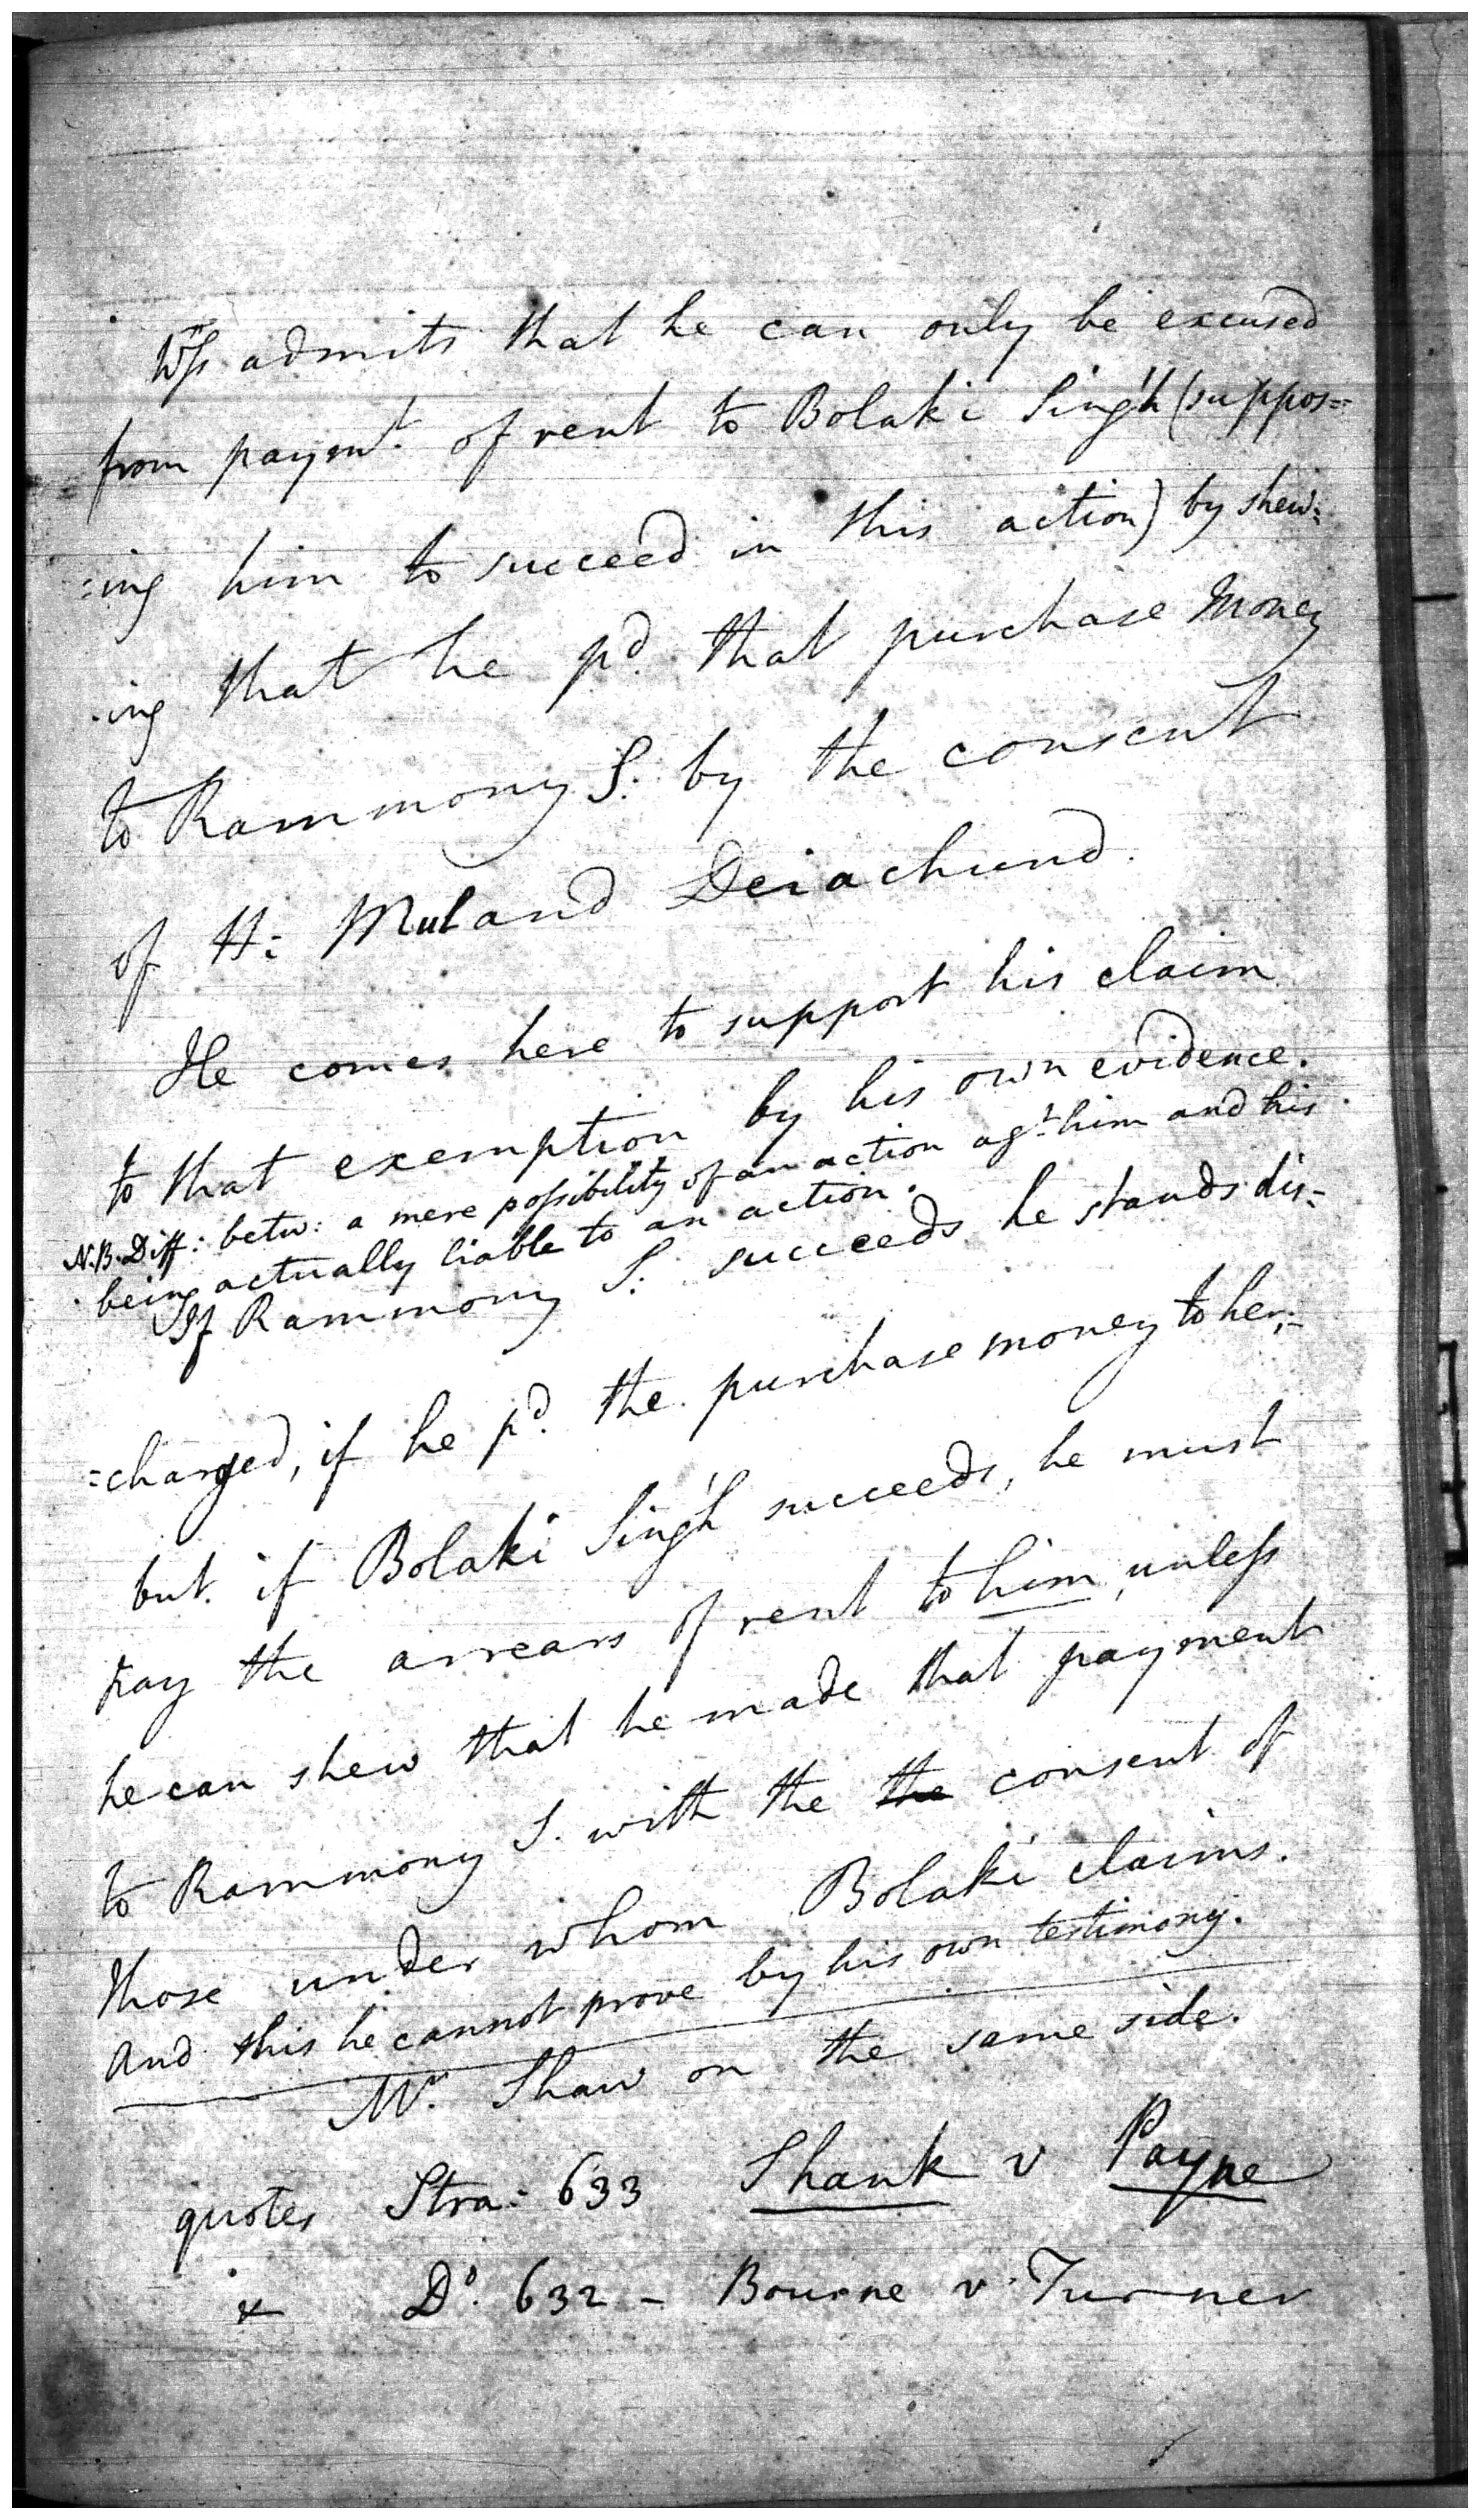 Wss. admits that he can only be excused
from paymt. of rent to Bolaki Singh (suppos=
=ing him to succeed in this action) by shew=
=ing that he pd. that purchase money
to Rammony S: by the consent
of H: Mul and Deiachund.
He comes here to support his claim
to that exemption by his own evidence.
N.B. Diff: betw: a mere possibility of an action agt. him and his
being actually liable to an action.
If Rammony S: succeeds he stands dis=
=charged, if he pd. the purchase money to her;-
but if Bolaki Singh succeeds, he must
pay the arrears of rent to him, unless
he can shew that he made that payment
to Rammony S. with the the consent of
those under whom Bolaki claims.
And this he cannot prove by his own testimony.
Mr. Shaw on the same side.
quotes Stra: 633 Shank v Payne
& Do. 632 - Bourne v. Turner